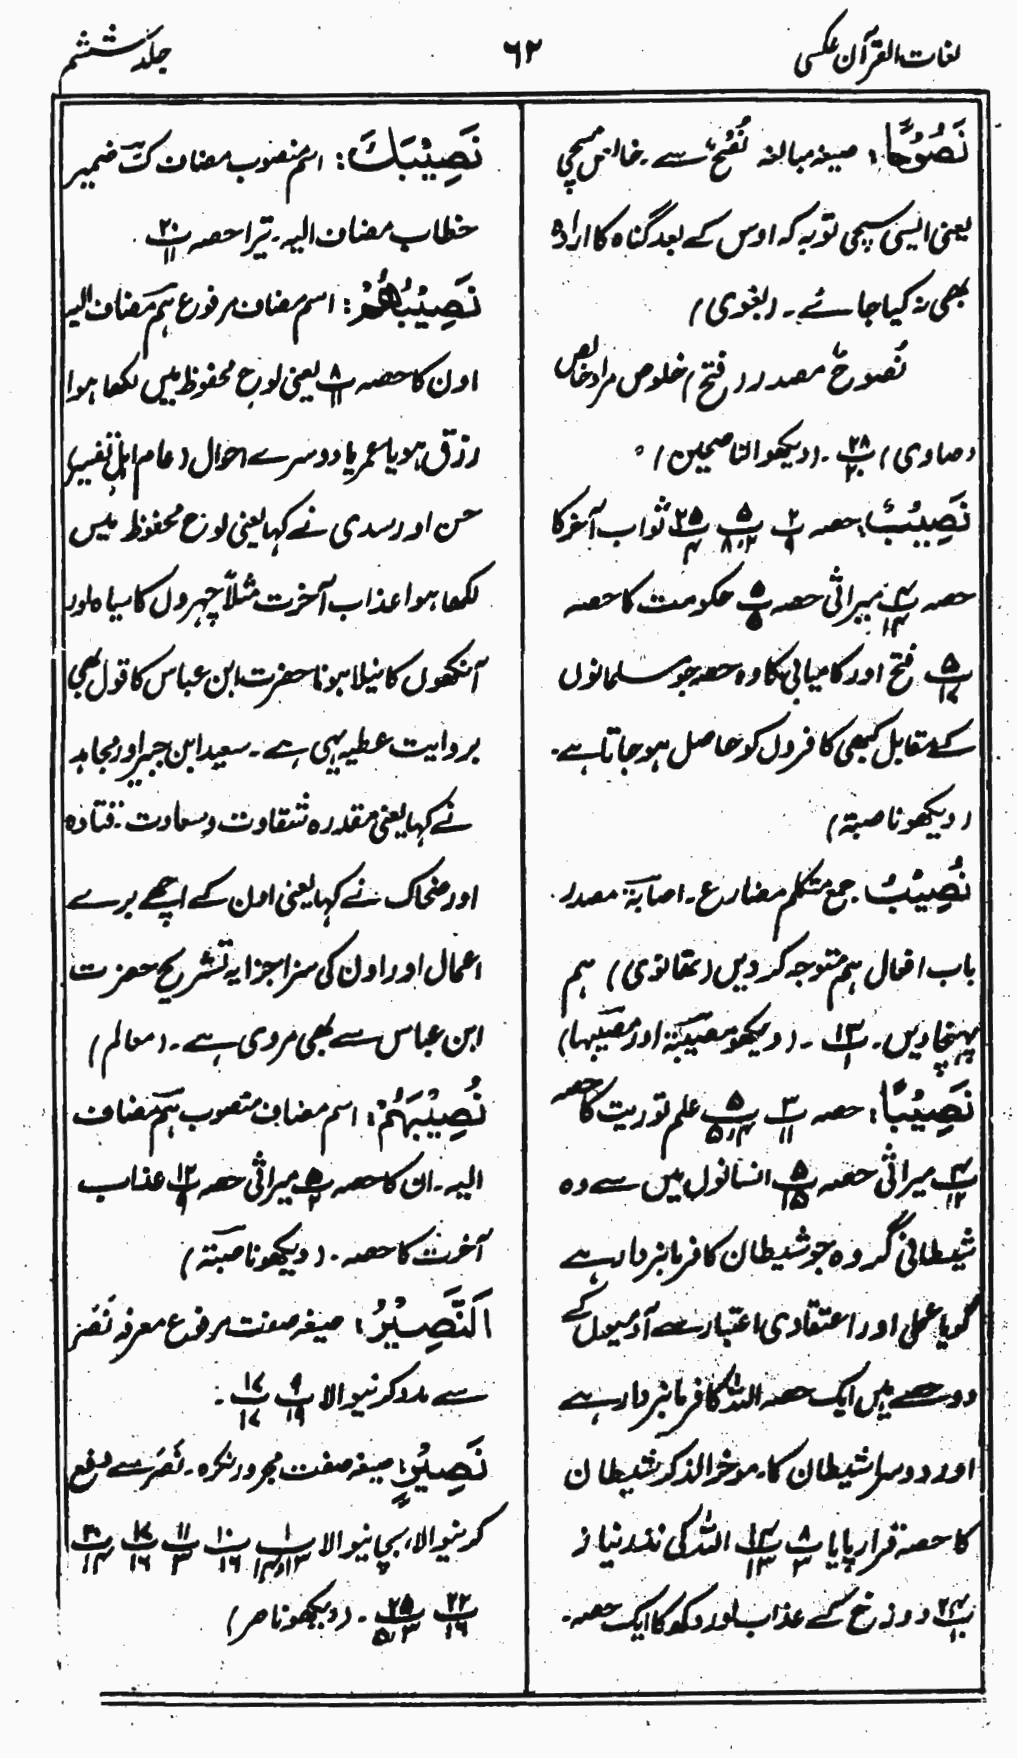 لغات القرآن عکسی
۶۲
جلد ششم
نَصُوْحًا: صیغہ مبالغہ نُصْحٌ سے۔ خالص سچی
یعنی ایسی سچی توبہ کہ اوس کے بعد گناہ کا ارادہ
بھی نہ کیا جائے۔ (بغوی)
نُصُوحٌ مصدر (فتح) خلوص مراد خالص
(صاوی) پ۲۸/۲۰۔ (دیکھو الناصحین)
نَصِيْبٌ: حصہ پ۲/۹ پ۵/۸،۲ پ۲۵/۴ ثواب آخر کا
حصہ پ۴/۱۴ میراثی حصہ پ۵/۵ حکومت کا حصہ
پ۵/۱۷ فتح اور کامیابی کا وہ حصہ جو مسلمانوں
کے مقابل کبھی کافروں کو حاصل ہو جاتا ہے۔
(دیکھو ناصبۃ)
نُصِيْبُ جمع متکلم مضارع۔ اصابۃ مصدر
باب افعال ہم متوجہ کر دیں (تھانوی) ہم
پہنچادیں۔ پ۱۳/۱۔ (دیکھو مصیبۃ اور مصیبہا)
نَصِيْبًا: حصہ پ۳/۱۱ پ۵/۵،۴ علم توریت کا حصہ
پ۴/۱۲ میراثی حصہ پ۵/۱۵ انسانوں میں سے وہ
شیطانی گروہ جو شیطان کا فرمانبردار ہے
گویا عملی اور اعتقادی اعتبار سے آدمیوں کے
دو حصے ہیں ایک حصہ اللہ کا فرمانبردار ہے
اور دوسرا شیطان کا۔ موخر الذکر شیطان
کا حصہ قرار پایا پ۸/۳ پ۱۴/۱۳ اللہ کی نذر نیاز
پ۲۴/۱۰ دوزخ کے عذاب اور دکھ کا ایک حصہ۔
نَصِيْبَكَ: اسم منصوب مضاف کَ ضمیر
خطاب مضاف الیہ۔ تیرا حصہ پ۲۰/۱۱۔
نَصِيْبُهُمْ: اسم مضاف مرفوع ہم مضاف الیہ
اون کا حصہ پ۸/۱۱ یعنی لوح محفوظ میں لکھا ہوا
رزق ہو یا عمر یا دوسرے احوال (عام اہل تفسیر)
حسن اور سدی نے کہا یعنی لوح محفوظ میں
لکھا ہوا عذاب آخرت مثلاً چہروں کا سیاہ اور
آنکھوں کا نیلا ہونا حضرت ابن عباس کا قول بھی
بروایت عطیہ یہی ہے۔ سعید ابن جبیر اور مجاہد
نے کہا یعنی مقدرہ شقاوت و سعادت۔ قتادہ
اور ضحاک نے کہا یعنی اون کے اچھے برے
اعمال اور اون کی سزا جزا یہ تشریح حضرت
ابن عباس سے بھی مروی ہے۔ (معالم)
نَصِيْبَهُمْ: اسم مضاف منصوب ہم مضاف
الیہ۔ ان کا حصہ پ۵/۲ میراثی حصہ پ۱۲/۹ عذاب
آخرت کا حصہ۔ (دیکھو ناصبۃ)
اَلنَّصِيْرُ: صیغہ صفت مرفوع معرفہ نَصْر
سے مدد کرنیوالا پ۹/۱۹ پ۱۷/۱۷۔
نَصِيْرٍ: صیغہ صفت مجرور نکرہ۔ نَصْر سے دفع
کرنیوالا، بچانیوالا پ۱/۱۳و۱۴ پ۱۰/۱۶ پ۱۱/۳ پ۱۷/۱۶ پ۲۰/۱۴
پ۲۲/۱۶ پ۲۵/۵،۳۔ (دیکھو ناصر)